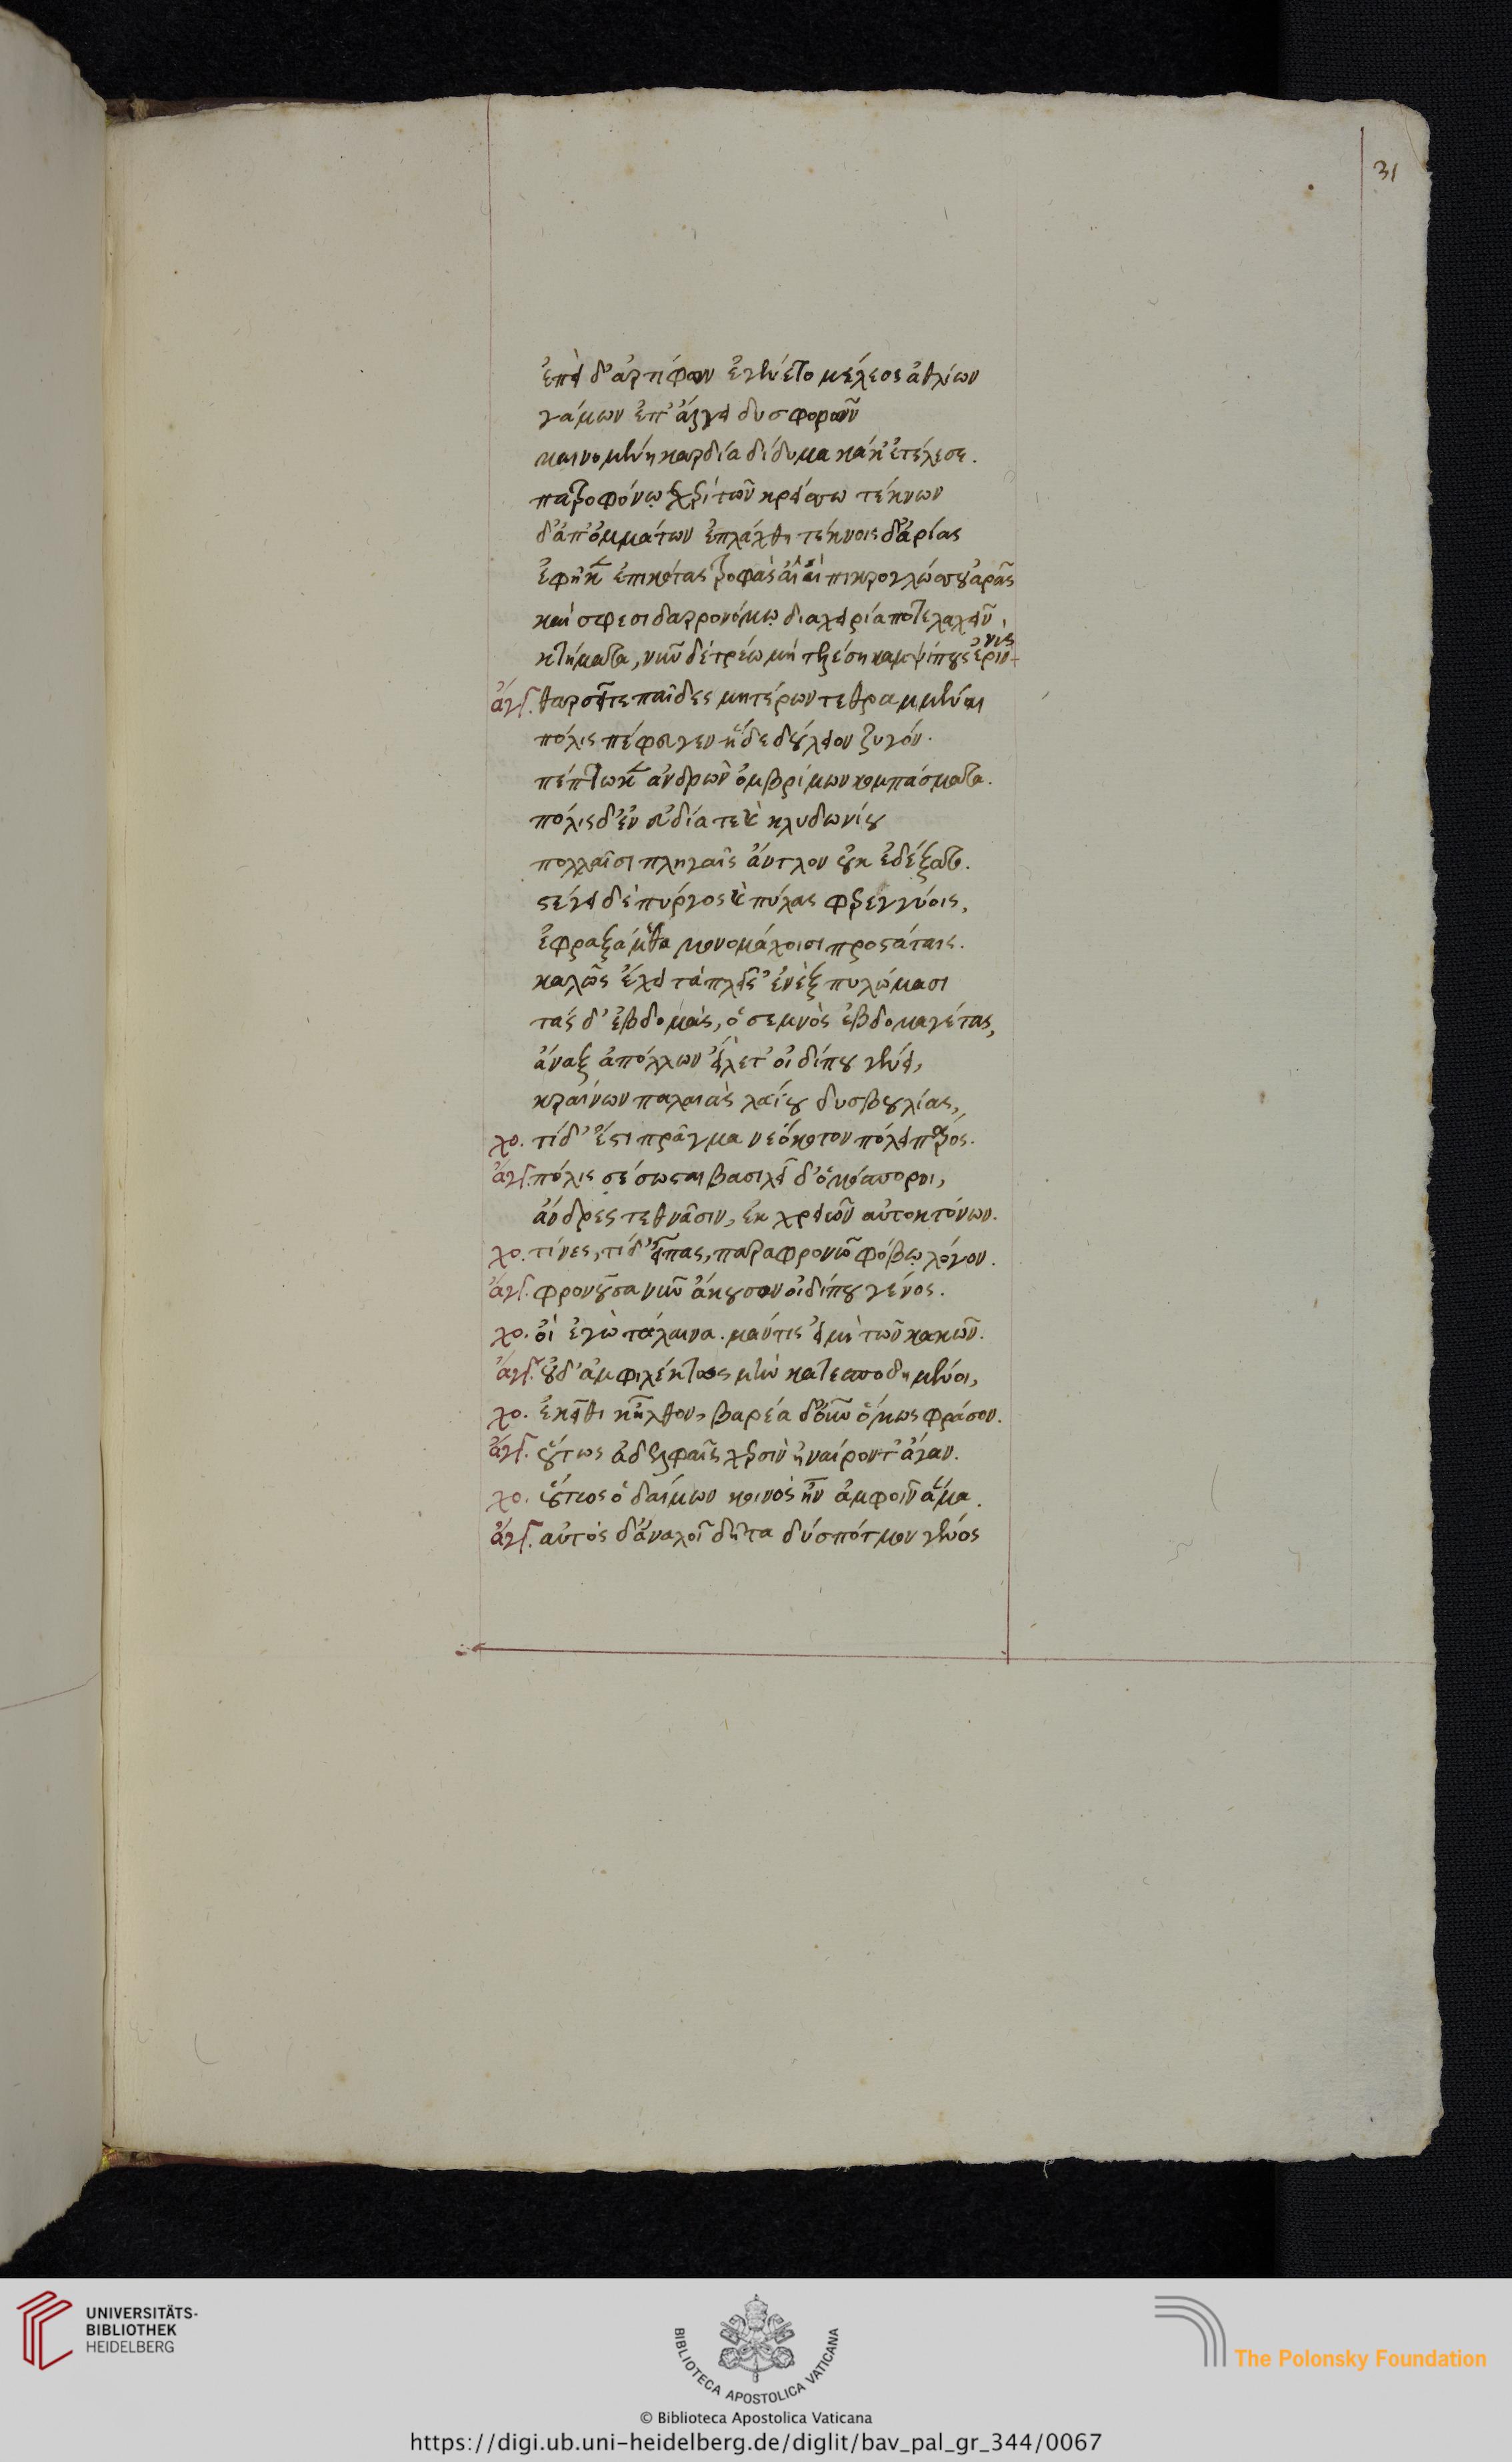 31
ἐπεὶ δ' ἀρτίφρων ἐγένετο μέλεος ἀθλίων
γάμων ἐπ' ἄλγει δυσφορῶν
μαινομένη καρδία δίδυμα κάκ' ἐτέλεσε.
πατροφόνῳ χερὶ τῶν κρεισσω τέκνων
δ' ἀπ' ὀμμάτων ἐπλάχθη τέκνοις δ' ἀρίας
ἐφῆκεν ἐπικότας τροφὰς αἶ αἶ πικρογλώσσου ἀρᾶς
καί σφε σιδαρονόμῳ διαχειρία ποτε λαχεῖν
κτήματα, νῦν δὲ τρέω μὴ τελέση καμψίπους ἐριννὺς
ἄγγ. θαρσεῖτε παῖδες μητέρων τεθραμμέναι
πόλις πέφευγεν ἥδε δούλειον ζυγόν.
πέπτωκεν ἀνδρῶν ὀμβρίμων κομπάσματα.
πόλις δ' ἐν εὐδία τε καὶ κλυδωνίου
πολλαῖσι πληγαῖς ἄντλον οὐκ ἐδέξατο.
στέγει δὲ πύργος καὶ πύλας φερεγγύοις,
ἐφραξάμεθα μονομάχοισι προστάταις.
καλῶς ἔχει τὰ πλεῖστ' ἐν ἓξ πυλώμασι
τὰς δ' ἑβδομὰς, ὁ σεμνὸς ἑβδομαγέτας,
ἄναξ ἀπόλλων εἵλετ' οἰδίπου γένει,
κραίνων παλαιὰς λαΐου δυσβουλίας,
χο. τί δ' ἔστι πρᾶγμα νεόκοτον πόλει παρός.
ἄγγ. πόλις σέσωσται βασιλεῖ δ' ὁμόσποροι,
ἄνδρες τεθνᾶσιν, ἐκ χρειῶν αὐτοκτόνων.
χο. τίνες, τί δ' εἶπας, παραφρονῶ φόβῳ λόγου.
ἄγγ. φρονοῦσα νῦν ἄκουσον οἰδίπου γένος.
χο. οἲ ἐγὼ τάλαινα. μάντις εἰμὶ τῶν κακῶν.
ἄγγ. οὐδ' ἀμφιλέκτως μὴν κατεσποδημένοι,
χο. ἐκεῖθι κῆλθον, βαρέα δ' οὖν ὅμως φράσον.
ἄγγ. οὕτως ἀδελφαῖς χερσὶν ἠναίροντ' ἄγαν.
χο. οὕτως ὁ δαίμων κοινὸς ἦν ἀμφοῖν ἅμα.
ἄγγ. αὐτὸς δ' ἀναλοῖ δῆτα δύσποτμον γένος
UNIVERSITÄTS-
BIBLIOTHEK
HEIDELBERG
BIBLIOTECA APOSTOLICA VATICANA
The Polonsky Foundation
© Biblioteca Apostolica Vaticana
https://digi.ub.uni-heidelberg.de/diglit/bav_pal_gr_344/0067